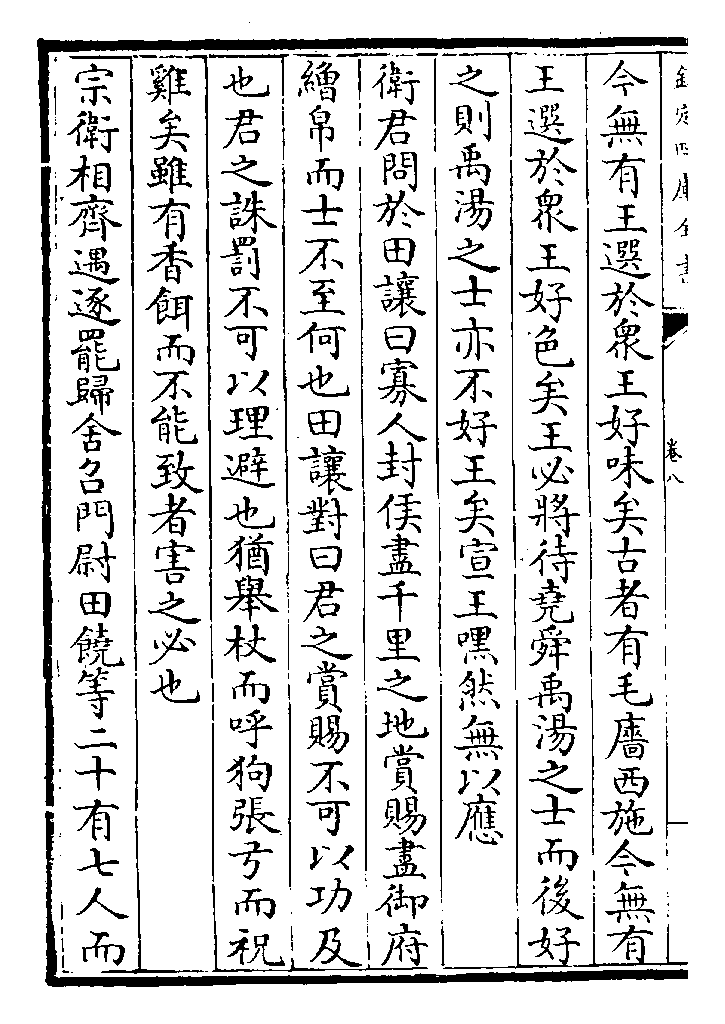 欽定四庫全書
卷八
今無有王選於衆王好味矣古者有毛廧西施今無有
王選於衆王好色矣王必將待堯舜禹湯之士而後好
之則禹湯之士亦不好王矣宣王嘿然無以應
衛君問於田讓曰寡人封侯盡千里之地賞賜盡御府
繒帛而士不至何也田讓對曰君之賞賜不可以功及
也君之誅罰不可以理避也猶舉杖而呼狗張弓而祝
雞矣雖有香餌而不能致者害之必也
宗衛相齊遇逐罷歸舍召門尉田饒等二十有七人而